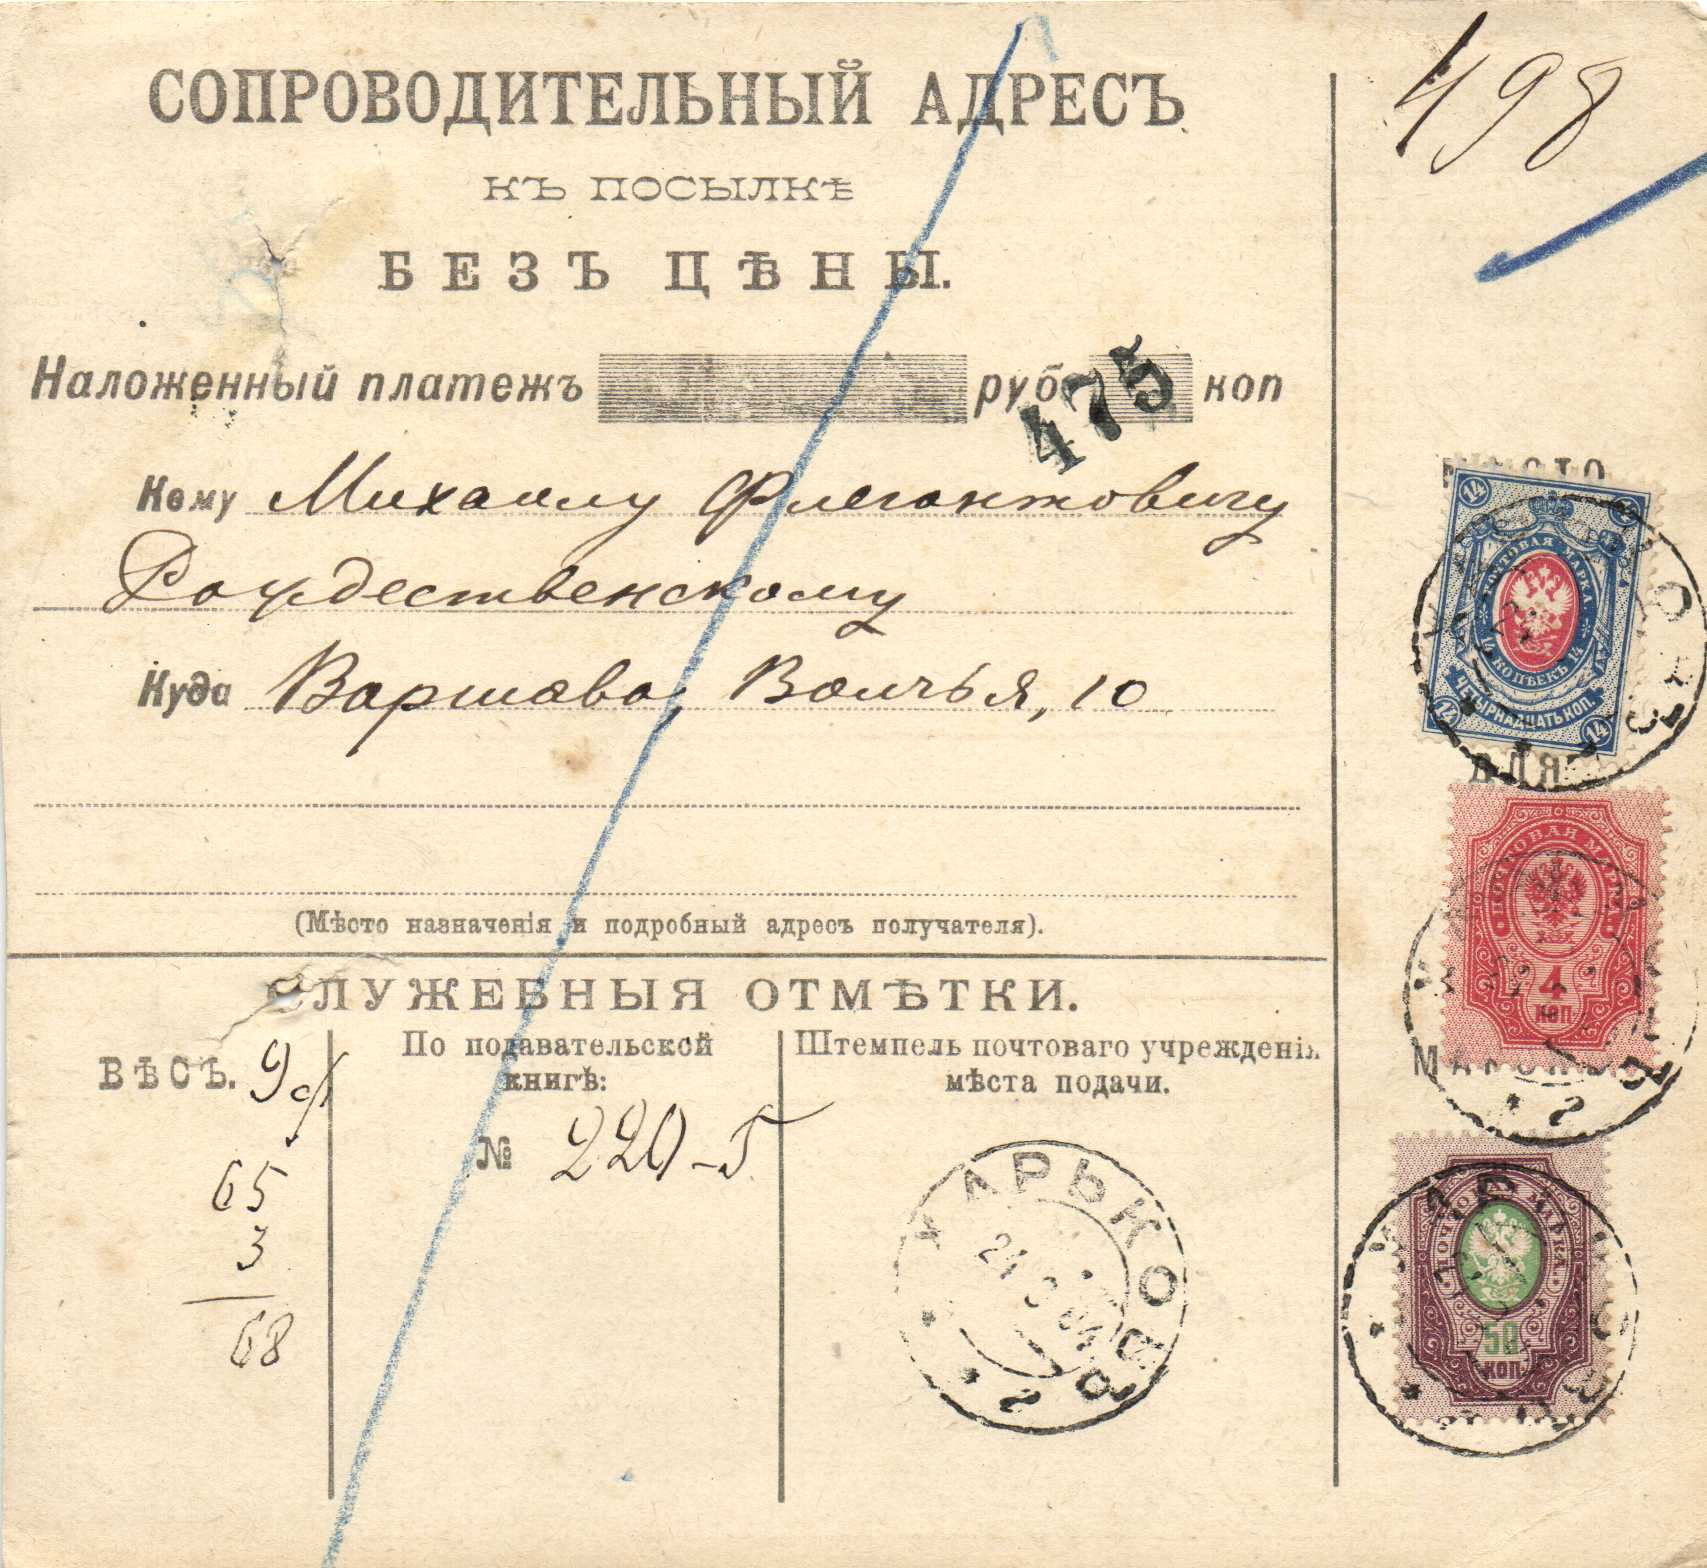 СОПРОВОДИТЕЛЬНЫЙ АДРЕСЪ
498
КЪ ПОСЫЛКѢ
БЕЗЪ ЦѢНЫ.
Наложенный платежъ руб коп
475
Кому Михаилу Флегонтовичу
Рождественскому
Куда Варшава, Волчья, 10
(Мѣсто назначенія и подробный адресъ получателя).
СЛУЖЕБНЫЯ ОТМѢТКИ.
ВѢСЪ. 9 ф
65
3
68
По подавательской
книгѣ:
№ 220-Б
Штемпель почтоваго учрежденія
мѣста подачи.
ХАРЬКОВЪ
2
МѢСТО
14
ПОЧТОВАЯ МАРКА.
14 КОПѢЕКЪ 14
ЧЕТЫРНАДЦАТЬ КОП.
14 14
ДЛЯ
ПОЧТОВАЯ МАРКА
4
КОП.
МАРОКЪ
ХАРЬКОВЪ
2
ПОЧТОВАЯ МАРКА
50
КОП.
ХАРЬКОВЪ